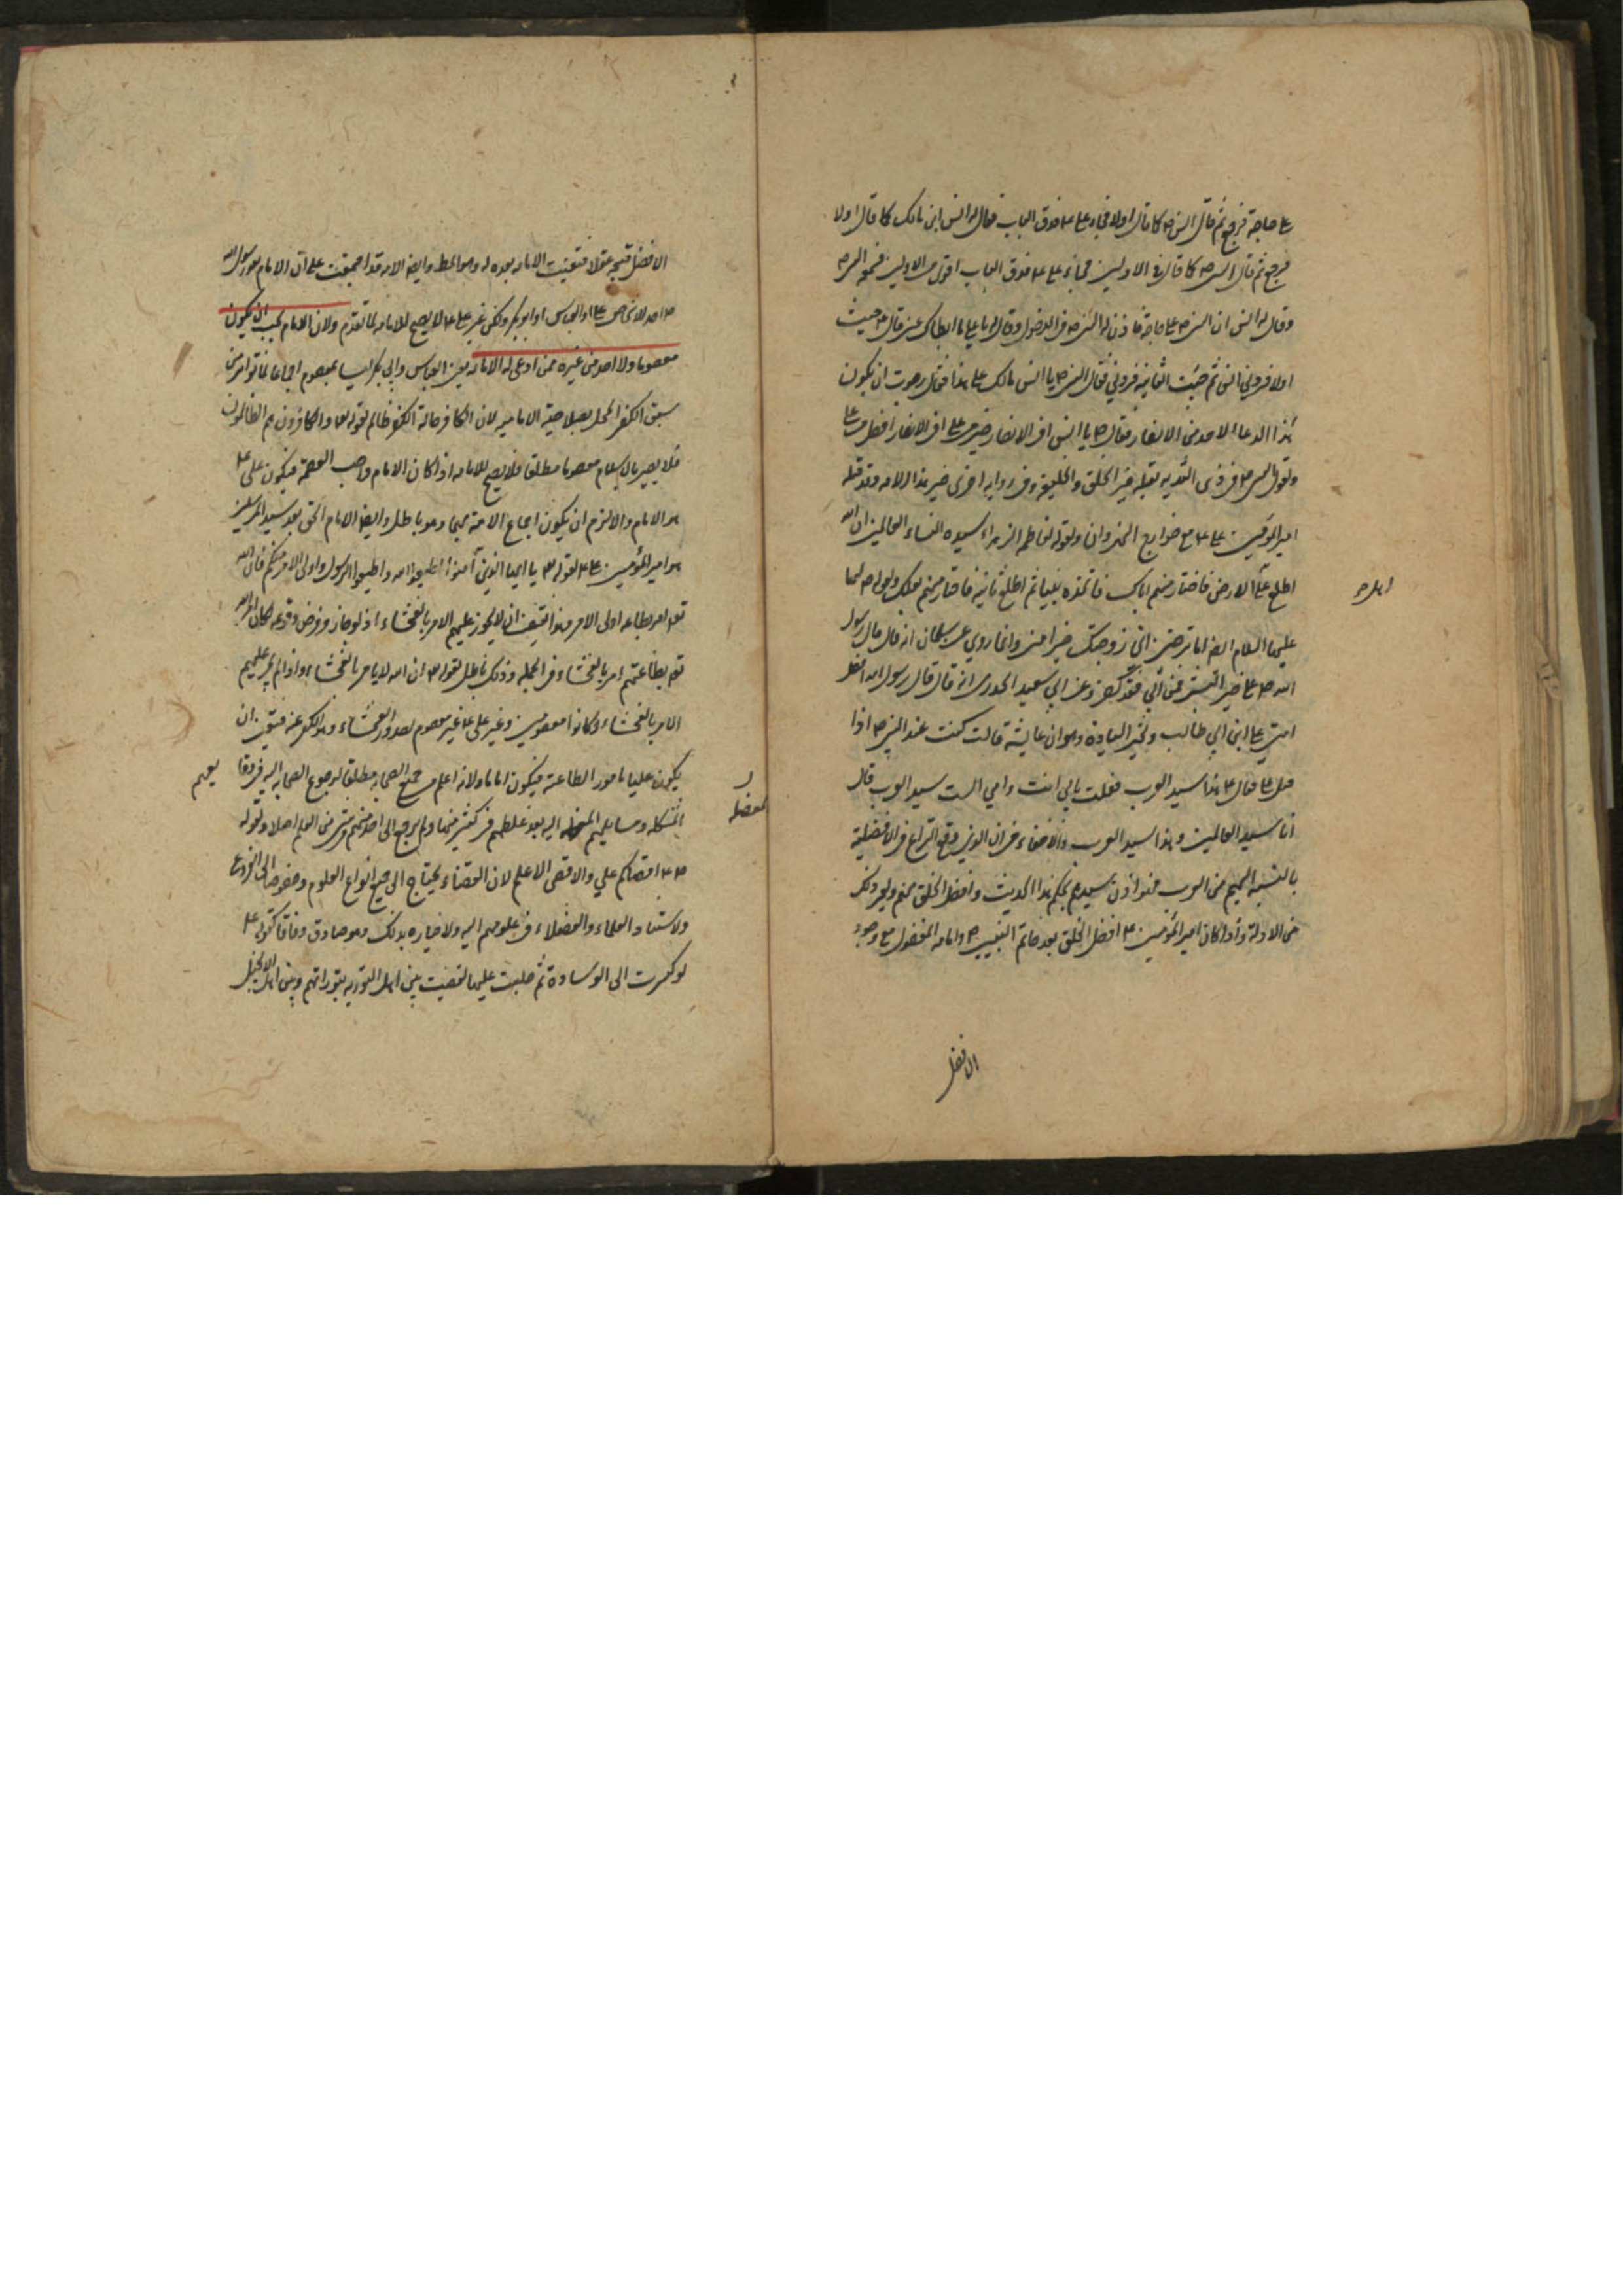 على حاجة فرجع ثم قال النبي ص كما قال اولا فجاء على ع م فدق الباب فقال له انس ابن مالك كما قال اولا
فرجع ثم قال النبي ص كما قال في الاوليين فجاء على ع م فدق الباب اقوى من الاوليين فسمعه النبي ص
وقال له انس ان النبي ص على حاجة فاذن له النبي ص في الدخول وقال له يا علي ما ابطاك عني قال ع جئت
اولا فردني انس ثم جئت الثانية فردني فقال النبي ص يا انس مالك على هذا فقال رجوت ان يكون
هذا الدعاء لاحد من الانصار فقال ص يا انس افي الانصار خير من علي افي الانصار افضل من علي
ولقول النبي ص في ذي الثدية يقتله خير الخلق والخليقة وفي رواية اخرى خير هذه الامه وقد قتله
امير المؤمنين على ع م مع خوارج النهروان ولقوله لفاطمه الزهراء سيدة النساء العالمين ان الله
اطلع على الارض فاختار منهم اباك فاتخذه نبيا ثم اطلع ثانية فاختار منهم بعلك ولقوله ص لها
عليها السلام ايضا اما ترضين اني زوجتك خير امتي وانما روي عن سلمان انه قال قال رسول
الله ص على خير البشر فمن ابى فقد كفر وعن ابي سعيد الخدري انه قال قال رسول الله افضل
امتي علي ابن ابي طالب ولخبر السيادة وهو ان عايشة قالت كنت عند النبي ص اذا
اقبل علي فقال ع هذا سيد العرب فقلت بابي انت وامي الست سيد العرب قال
انا سيد العالمين وهذا سيد العرب ولا خفاء في ان الذين وقع النزاع في الافضلية
بالنسبة اليهم من العرب فهو اذن سيدهم بحكم هذا الحديث وافضل الخلق منهم ولغير ذلك
من الادلة واذا كان امير المؤمنين ع افضل الخلق بعد خاتم النبيين ص وامامة المفضول مع وجود
الافضل
الافضل قبيح عقلا فتعينت الامامه بعده له وهو المط وايضا الامه قد اجمعت على ان الامام بعد رسول الله
ص احد الاشخاص علي او العباس او ابو بكر ولكن غير علي ع م لا يصح للامامة لما تقدم ولان الامام يجب ان يكون
معصوما ولا احد من غيره ممن ادعى له الامامة يعني العباس وابي بكر ليسا بمعصوم اجماعا لما تواتر من
سبق الكفر المخل بصلاحية الامامية لان الكافر حالة الكفر ظالم لقوله تعا والكافرون هم الظالمون
فلا يصير بالاسلام معصوما مطلقا فلا يصح للامامه اذا كان الامام واجب العصمة فيكون علي ع
هو الامام والا لزم ان يكون اجماع الامة عليها وهو باطل وايضا الامام الحق بعد سيد المرسلين
هو امير المؤمنين علي ع م لقوله تعا يا ايها الذين آمنوا اطيعوا الله واطيعوا الرسول واولى الامر منكم فان الله
تعا امر بطاعه اولى الامر وهذا يقتضي ان لا يجوز عليهم الامر بالفحشاء اذ لو جاز وفرض وقوعه لكان امر الله
تعا بطاعتهم امر بالفحشاء في الجملة وذلك باطل لقوله تعا ان الله لا يامر بالفحشاء واذا لم يجز عليهم
الامر بالفحشاء وكانوا معصومين وغير علي ع غير معصوم لصدور الفحشاء وهو الكفر عنه فتعين ان
يكون عليا مامور الطاعته فيكون اماما ولانه اعلم من جميع الصحابه مطلقا لرجوع الصحابه اليه في وقايعهم
المشكله ومسايلهم المعضله اليه بعد غلطهم في كثير منها ولم يرجع الى احد منهم في شئ من العلم اصلا ولقوله
ص ع اقضاكم علي والاقضى الاعلم لان القضاء يحتاج الى جميع انواع العلوم وخصوصا الى الفروع
ولاستناد العلماء والفضلاء في علومهم اليه ولاخباره بذلك وهو صادق وفاقا كقوله ع
لو كسرت الى الوسادة ثم جلست عليها لقضيت بين اهل التورية بتوراتهم وبين اهل الانجيل